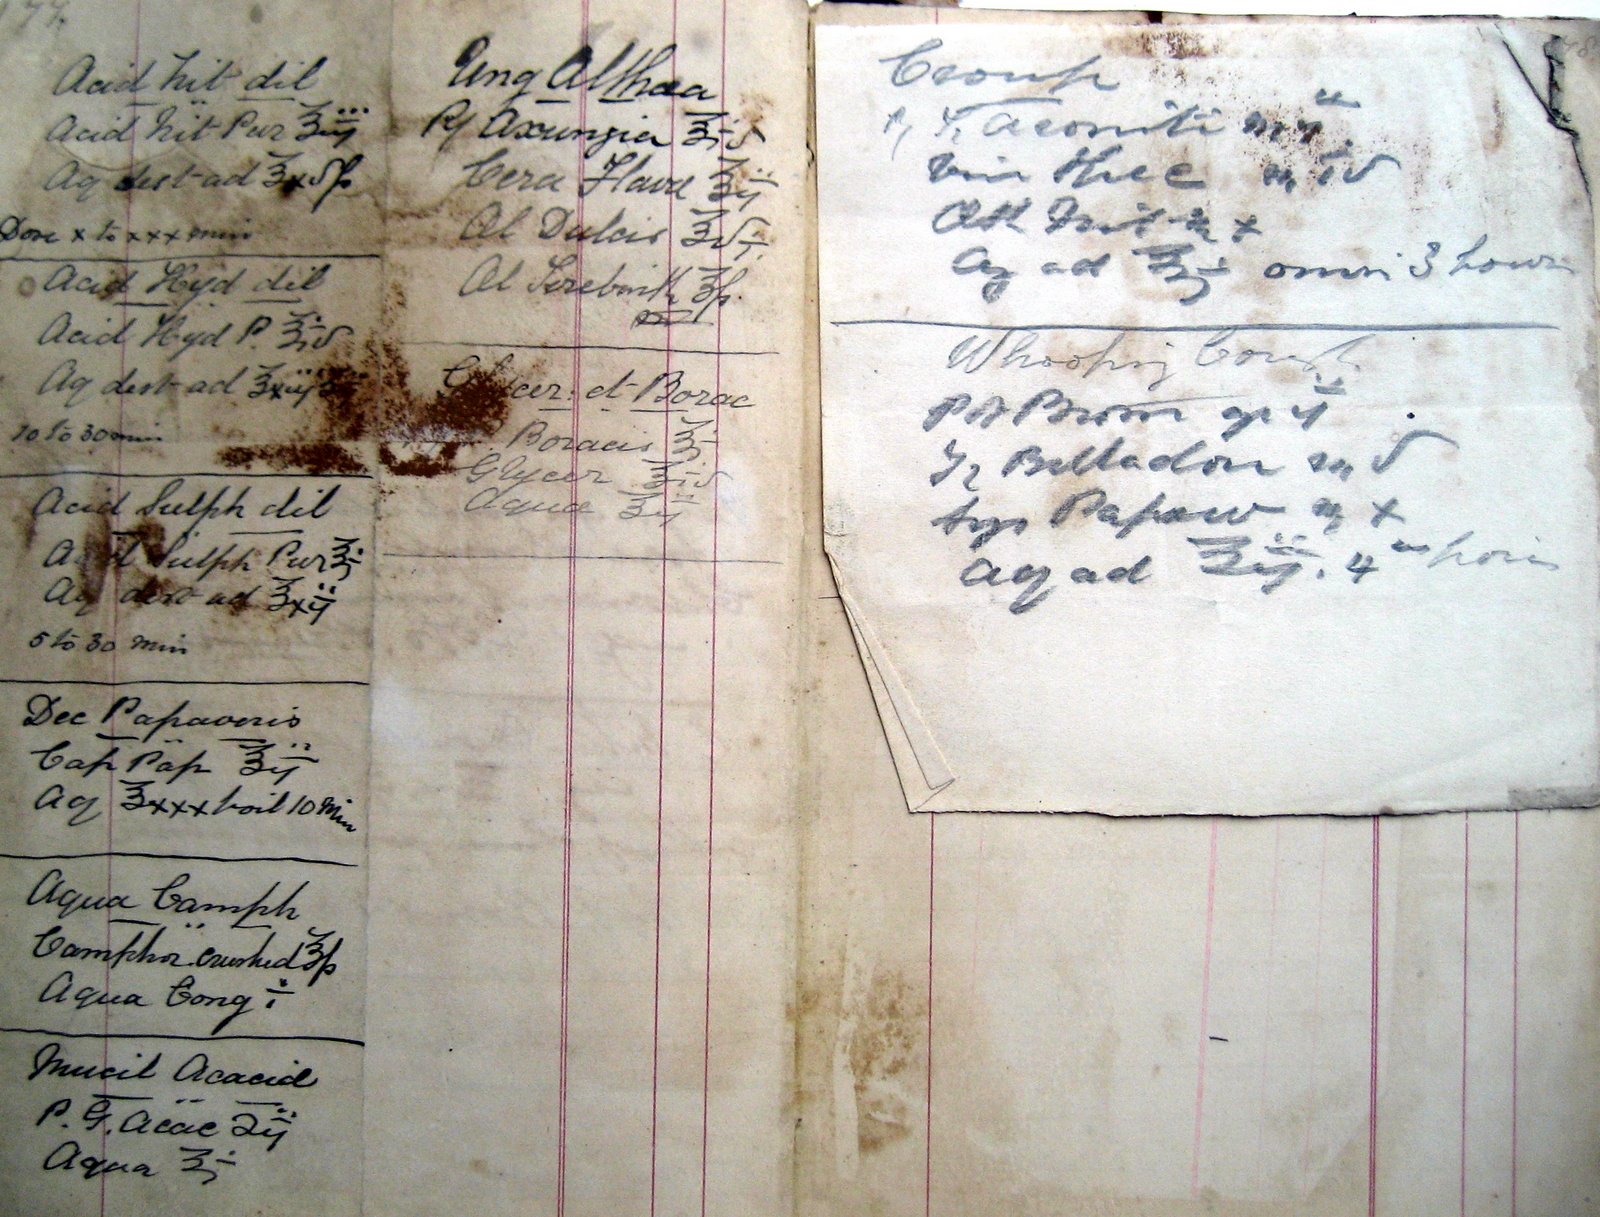 177.
Acid Nit dil
Acid Nit Pur ℥iij
Aq dest ad ℥xvß
Dose x to xxx min
Acid Hyd dil
Acid Hyd P. ℥iv
Aq dest ad ℥xiij
10 to 30 min
Acid Sulph dil
Acid Sulph Pur ℥j
Aq dest ad ℥xij
5 to 30 min
Dec Papaveris
Cap Pap ℥ij
Aq ℥xxx boil 10 min
Aqua Camph
Camphor crushed ℥ß
Aqua Cong i
Mucil Acacid
P. G. Acac ʒij
Aqua ℥j
Ung Althaea
R/ Axungia ℥iv
Cera Flava ℥ij
Ol Dulcis ℥vi.
Ol Terebinth ℥ß.
Glycer: et Borac
Boracis ℥j
Glycer ℥iv
Aqua ℥ij
Croup
T. Aconiti ♏
Vin Ipec ♏ iv
Nit ♏ x
Aq ad ℥j omni 3 hours
Whooping Cough
Pot Brom gr ij
Tr Belladon ♏ v
Syr Papav ♏ x
Aq ad ℥ij. 4 hours